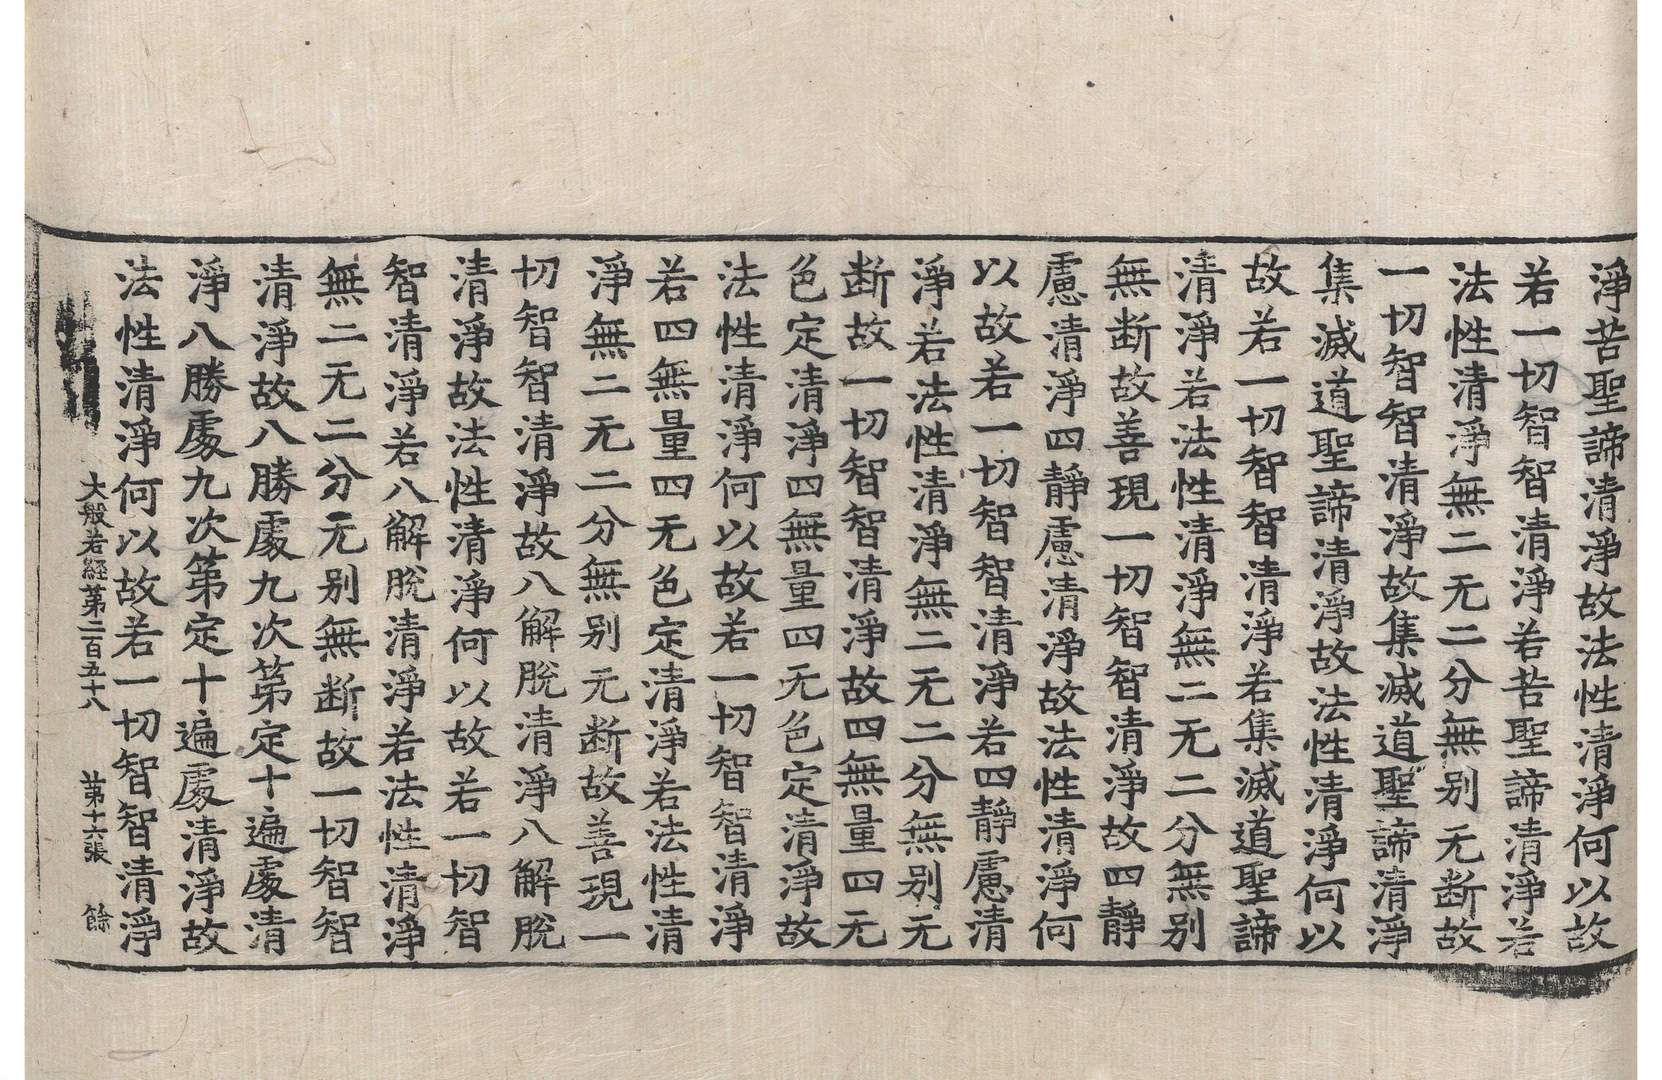 淨苦聖諦清淨故法性清淨何以故
若一切智智清淨若苦聖諦清淨若
法性清淨無二无二分無别无断故
一切智智清淨故集滅道聖諦清淨
集滅道聖諦清淨故法性清淨何以
故若一切智智清淨若集滅道聖諦
清淨若法性清淨無二无二分無别
無断故善現一切智智清淨故四靜
慮清淨四靜慮清淨故法性清淨何
以故若一切智智清淨若四靜慮清
淨若法性清淨無二无二分無别无
断故一切智智清淨故四無量四无
色定清淨四無量四无色定清淨故
法性清淨何以故若一切智智清淨
若四無量四无色定清淨若法性清
淨無二无二分無别无断故善現一
切智智清淨故八解脫清淨八解脫
清淨故法性清淨何以故若一切智
智清淨若八解脫清淨若法性清淨
無二无二分无别無断故一切智智
清淨故八勝處九次第定十遍處清
淨八勝處九次第定十遍處清淨故
法性清淨何以故若一切智智清淨
大般若経第二百五十八 第十六張 餘